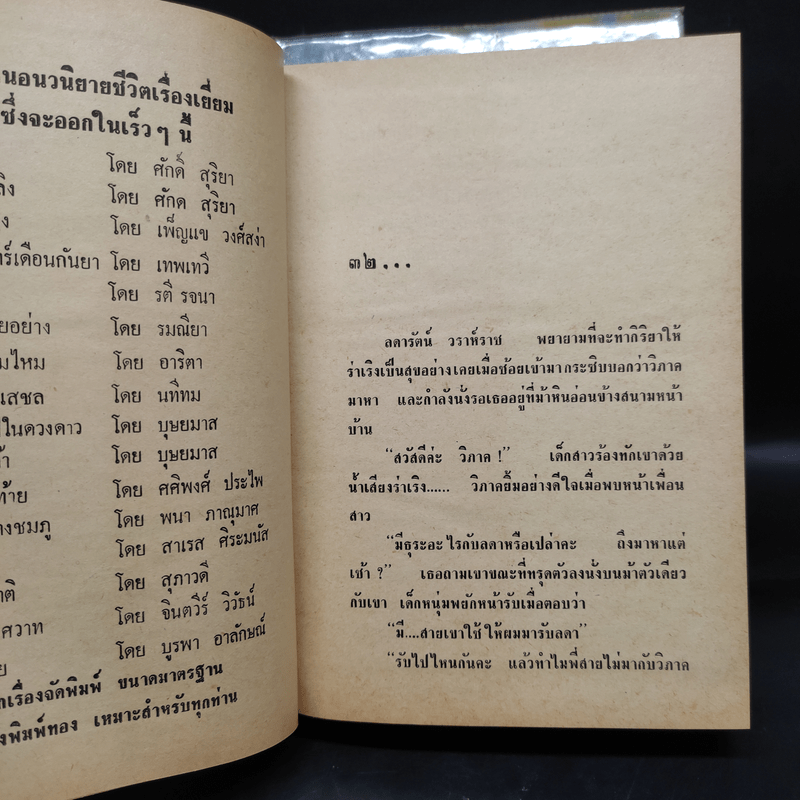 นอนวนิยายชีวิตเรื่องเยี่ยม
ซึ่งจะออกในเร็วๆ นี้
โดย ศักดิ์ สุริยา
โดย ศักด สุริยา
โดย เพ็ญแข วงศ์สง่า
เดือนกันยา โดย เทพเทวี
โดย รตี รจนา
อย่าง โดย รมณียา
ไหม โดย อาริตา
สชล โดย นที่ทม
ในดวงดาว โดย บุษยมาส
โดย บุษยมาส
ท้าย โดย ศศิพงศ์ ประไพ
ชมภู โดย พนา ภาณุมาศ
โดย สาเรส ศิระมนัส
โดย สุภาวดี
ศวาท โดย จินตวีร์ วิวัธน์
โดย บูรพา อาลักษณ์
เรื่องจัดพิมพ์ ขนาดมาตรฐาน
พิมพ์ทอง เหมาะสำหรับทุกท่าน
๓๒...
ลดารัตน์ วราห์ราช พยายามที่จะทำกิริยาให้
ร่าเริงเป็นสุขอย่างเคยเมื่อช้อยเข้ามากระซิบบอกว่าวิภาค
มาหา และกำลังนั่งรอเธออยู่ที่ม้าหินอ่อนข้างสนามหน้า
บ้าน
“สวัสดีค่ะ วิภาค !” เด็กสาวร้องทักเขาด้วย
น้ำเสียงร่าเริง...... วิภาคยิ้มอย่างดีใจเมื่อพบหน้าเพื่อน
สาว
“มีธุระอะไรกับลดาหรือเปล่าคะ ถึงมาหาแต่
เช้า ?” เธอถามเขาขณะที่ทรุดตัวลงนั่งบนม้าตัวเดียว
กับเขา เด็กหนุ่มพยักหน้ารับเมื่อตอบว่า
“มี....สายเขาใช้ให้ผมมารับลดา”
“รับไปไหนกันคะ แล้วทำไมพี่สายไม่มากับวิภาค